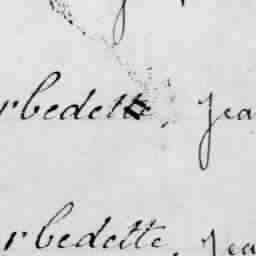 rbedette, Jea
rbedette, Jea